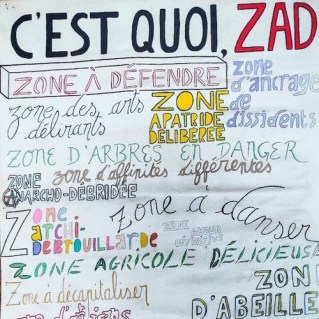 C'EST QUOI, ZAD
ZONE À DÉFENDRE
zone
d'ancrage
de
dissidents
zone des arts
délirants
ZONE
APATRIDE
DÉLIBÉRÉE
ZONE D'ARBRES EN DANGER
zone d'affinités différentes
ZONE
ANARCHO-DÉBRIDÉE
Zone
archi-
DÉBROUILLARDE
Zone à danser
ZONE AGRICOLE DÉLICIEUSE
Zone à décapitaliser
ZONE
D'ABEILLE